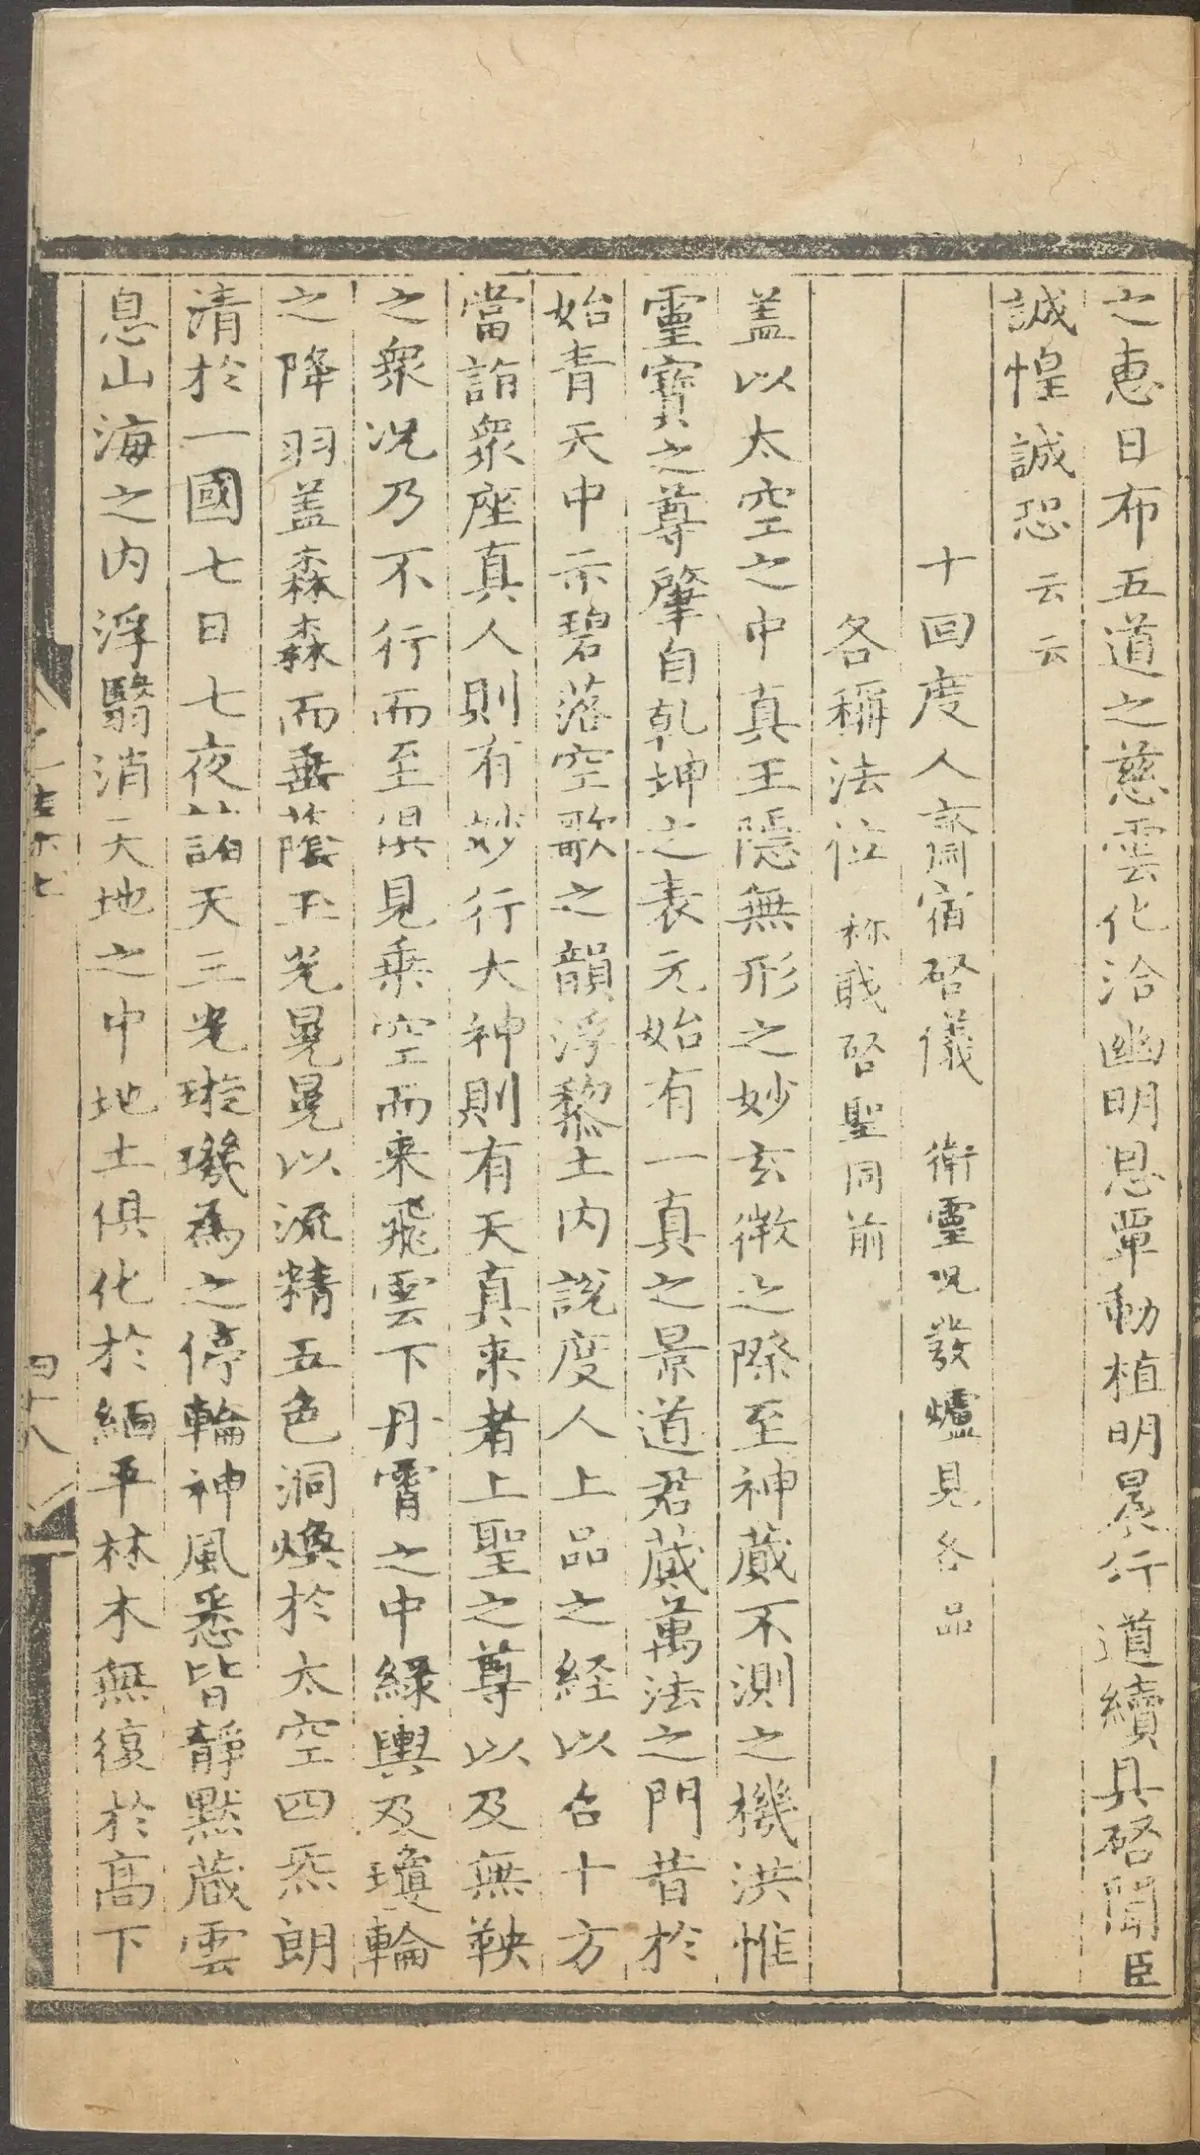 之惠日布五道之慈雲化洽幽明恩覃動植明晨行道續具啓聞臣
誠惶誠恐云云
十回度人齋宿啓儀 衛靈呪發爐見各品
各稱法位 称戢啓聖同前
蓋以太空之中真王隱無形之妙玄徴之際至神蔵不測之機洪惟
靈寶之尊肇自乹坤之表元始有一真之景道君蔵萬法之門昔於
始青天中示碧落空歌之韻浮黎土内説度人上品之経以召十方
當詣衆座真人則有妙行大神則有天真来者上聖之尊以及無鞅
之衆况乃不行而至俱見乗空而来飛雲下丹霄之中緑輿及瓊輪
之降羽盖森森而垂蔭玉光晃晃以流精五色洞煥於太空四炁朗
清於一國七日七夜諸天三光璇璣為之停輪神風悉皆静黙蔵雲
息山海之内浮翳消天地之中地土俱化於緬平林木無復於髙下
四十八